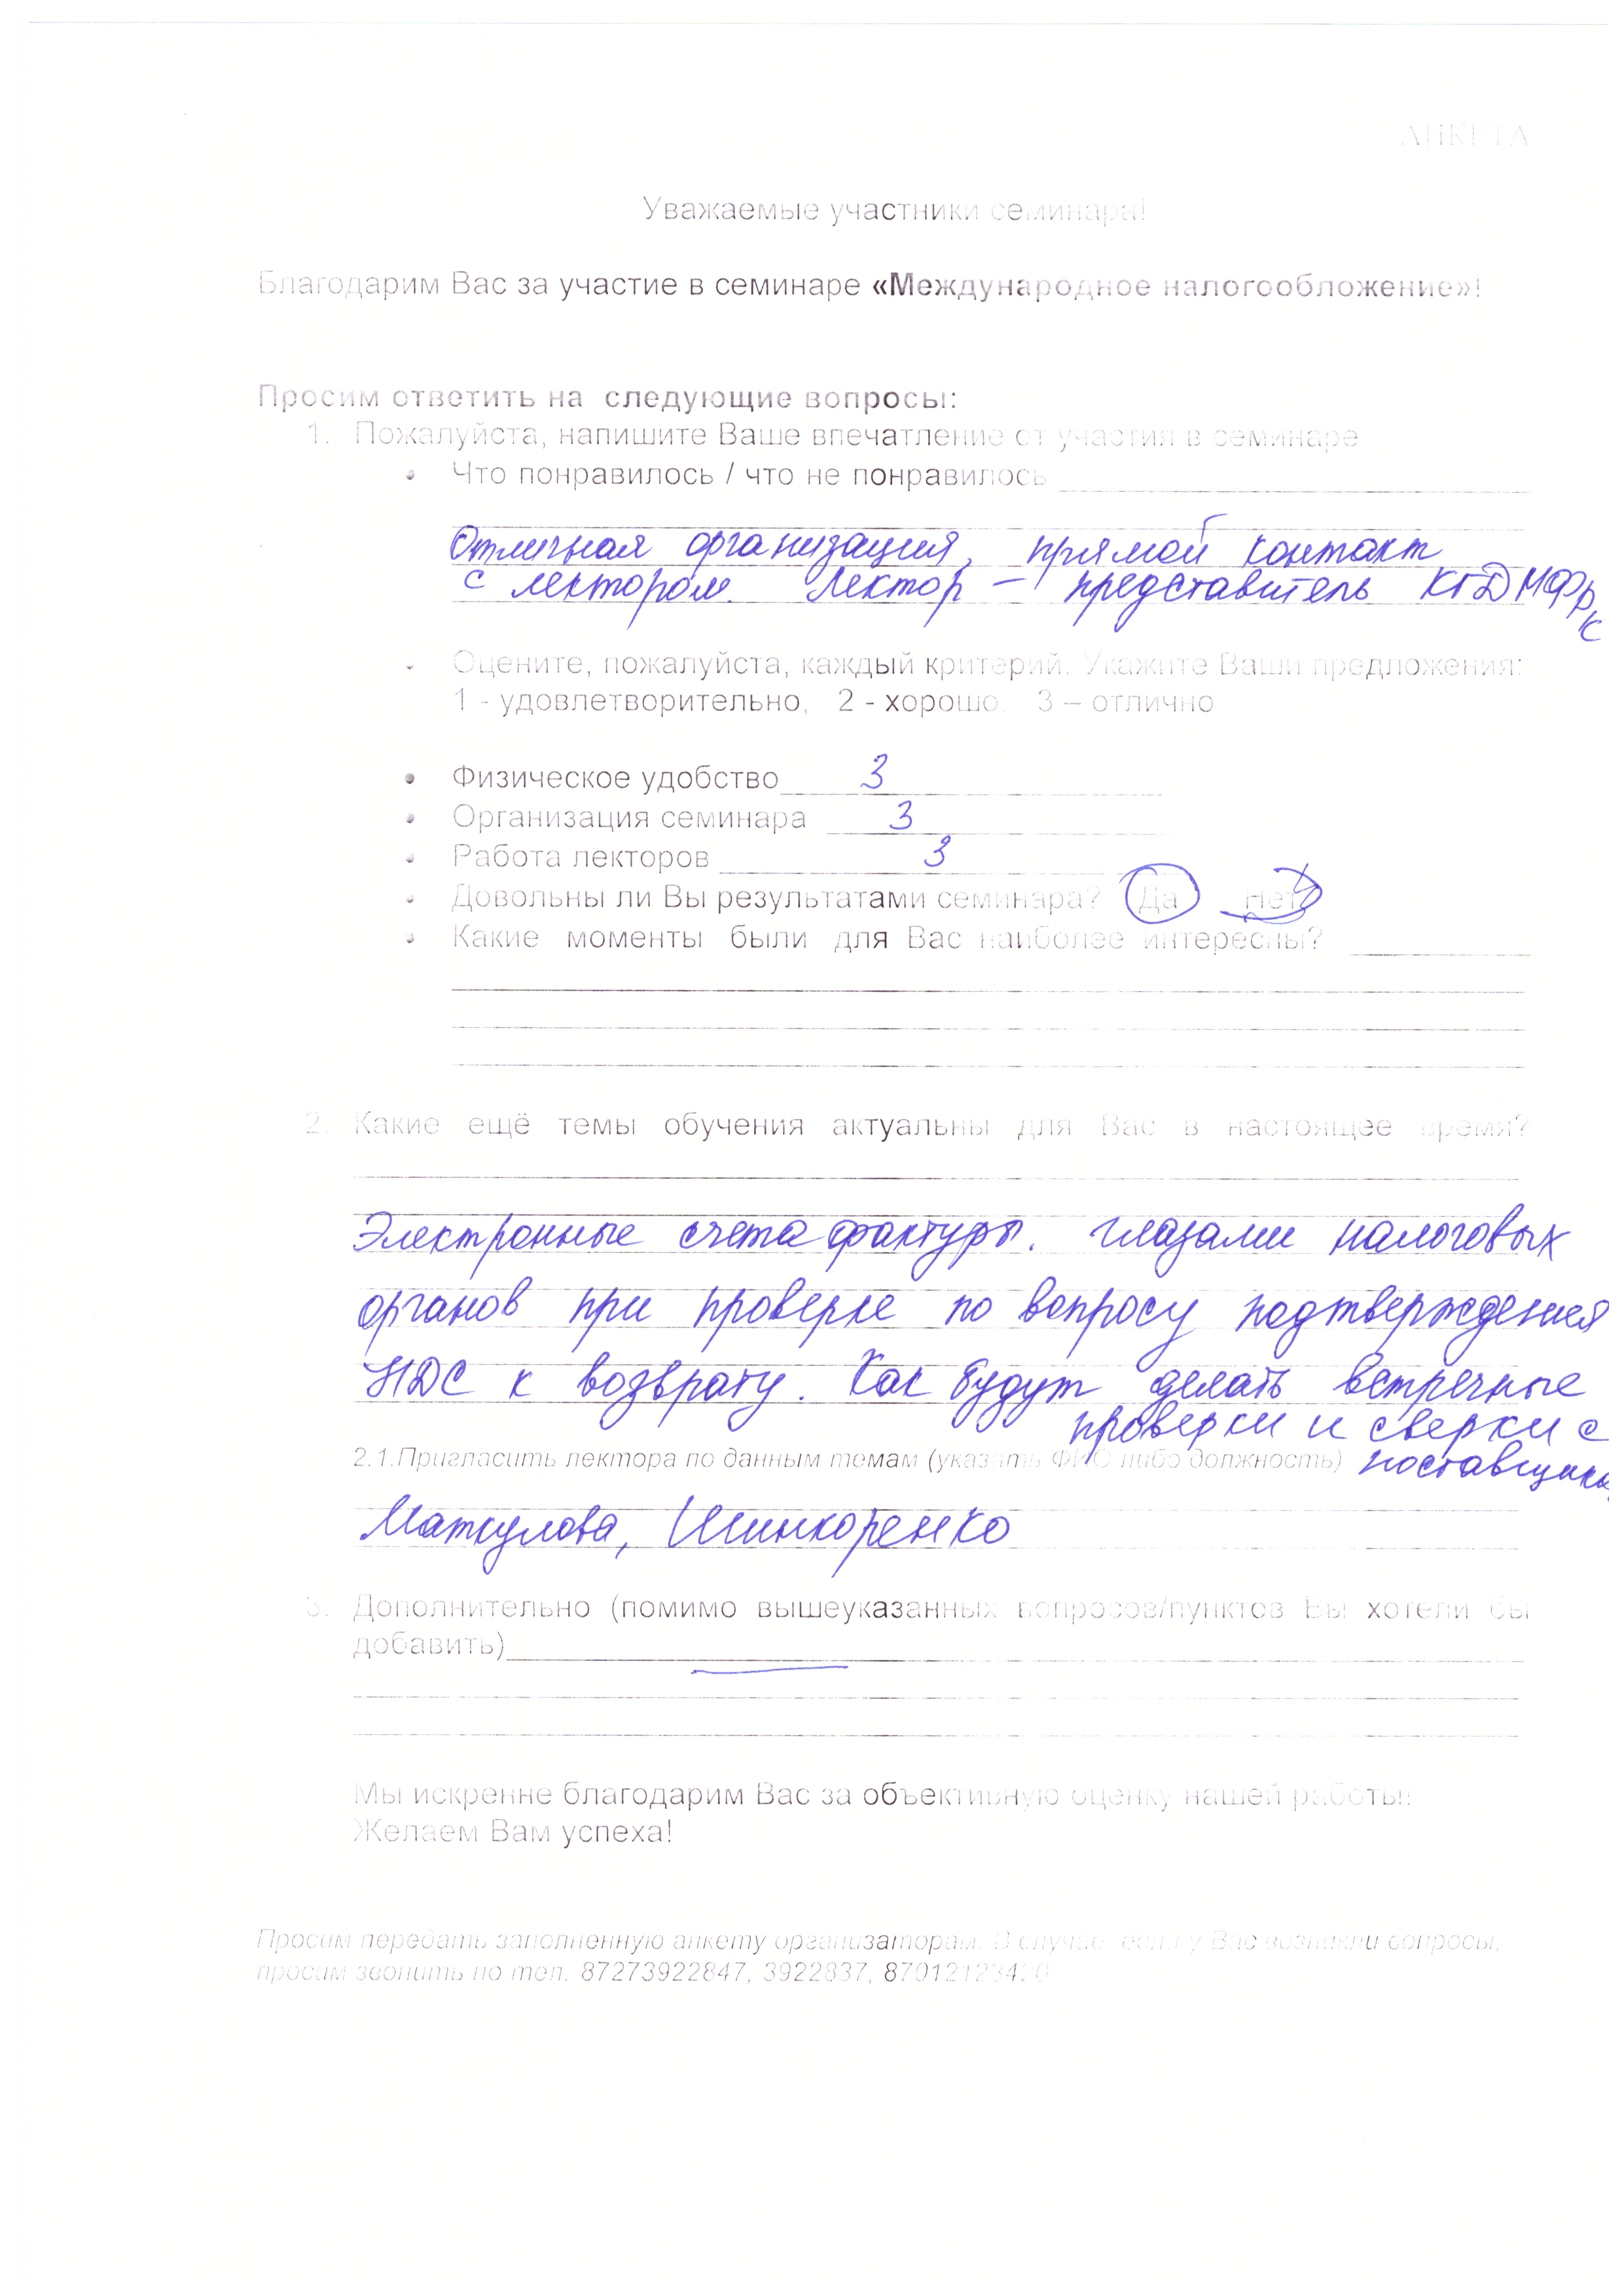 АНКЕТА
Уважаемые участники семинара!
Благодарим Вас за участие в семинаре «Международное налогообложение»!
Просим ответить на следующие вопросы:
1. Пожалуйста, напишите Ваше впечатление от участия в семинаре
• Что понравилось / что не понравилось
Отличная организация, прямой контакт
с лектором. Лектор – представитель КГД МФ РК
- Оцените, пожалуйста, каждый критерий. Укажите Ваши предложения:
1 - удовлетворительно, 2 - хорошо, 3 – отлично
• Физическое удобство 3
• Организация семинара 3
• Работа лекторов 3
• Довольны ли Вы результатами семинара? Да Нет
• Какие моменты были для Вас наиболее интересны?
2. Какие ещё темы обучения актуальны для Вас в настоящее время?
Электронные счета фактуры. глазами налоговых
органов при проверке по вопросу подтверждения
НДС к возврату. Как будут делать встречные
проверки и сверки с
2.1.Пригласить лектора по данным темам (указать ФИО либо должность) поставщиками
Маткулова, Шинкоренко
3. Дополнительно (помимо вышеуказанных вопросов/пунктов Вы хотели бы
добавить)
Мы искренне благодарим Вас за объективную оценку нашей работы!
Желаем Вам успеха!
Просим передать заполненную анкету организаторам. В случае, если у Вас возникли вопросы,
просим звонить по тел. 87273922847, 3922837,